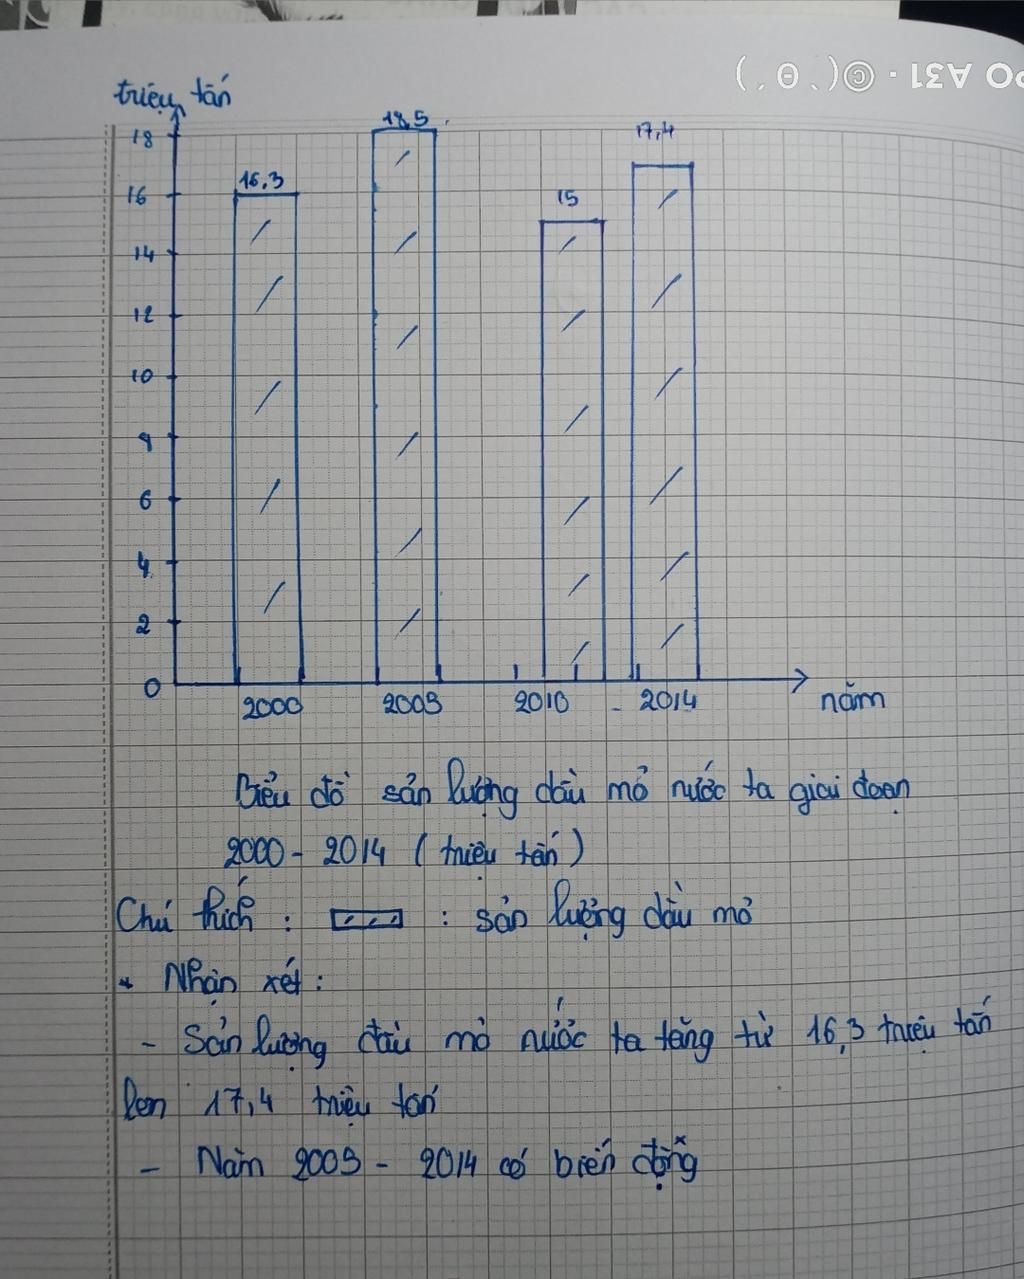 PO A31 · ©(´ θ ` )
triệu tấn
18,5
17,4
18
16,3
16
15
14
12
10
8
6
4
2
0
2000 2009 2010 - 2014 năm
Biểu đồ sản lượng dầu mỏ nước ta giai đoạn
2000 - 2014 ( triệu tấn )
Chú thích : : sản lượng dầu mỏ
* Nhận xét :
- Sản lượng dầu mỏ nước ta tăng từ 16,3 triệu tấn
lên 17,4 triệu tấn
- Năm 2009 - 2014 có biến động